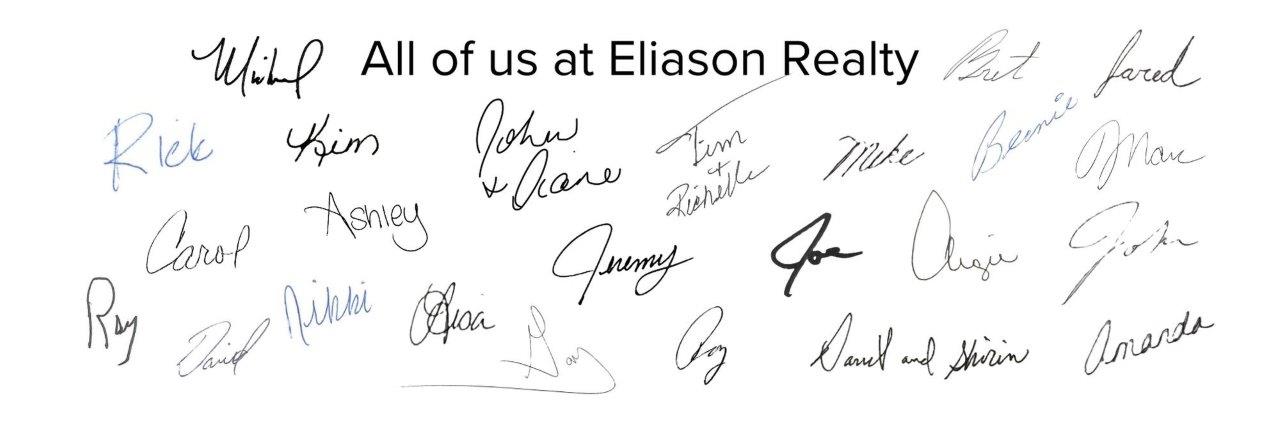 Michael All of us at Eliason Realty Bret Jared
Rick Kim John Tim Mike Bernie Marc
& Diane + Richelle
Carol Ashley Jeremy Joe Angie John
Ray David Nikki Gary Roy and Shirin Amanda